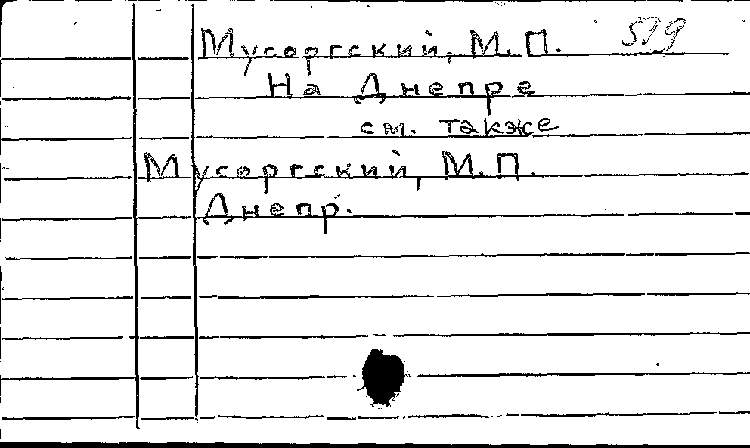 Мусоргский, М. П. 519
На Днепре
см. также
Мусоргский, М. П.
Днепр.